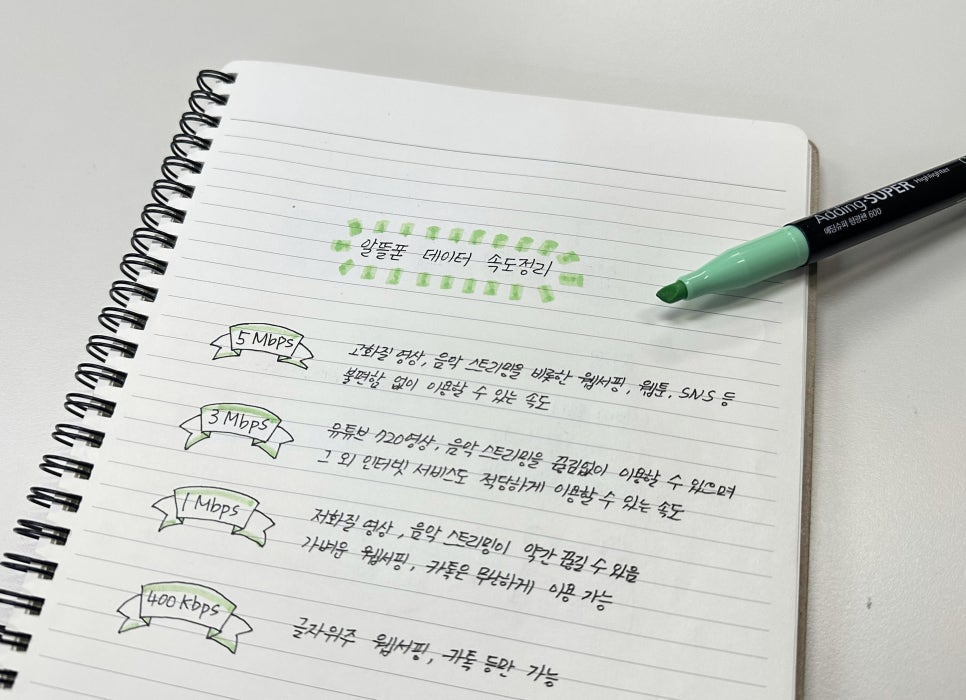 알뜰폰 데이터 속도정리
5 Mbps
고화질 영상, 음악 스트리밍을 비롯한 웹서핑, 웹툰, SNS 등
불편함 없이 이용할 수 있는 속도
3 Mbps
유튜브 720영상, 음악 스트리밍을 끊김없이 이용할 수 있으며
그 외 인터넷 서비스도 적당하게 이용할 수 있는 속도
1 Mbps
저화질 영상, 음악 스트리밍이 약간 끊길 수 있음
가벼운 웹서핑, 카톡은 무난하게 이용 가능
400 Kbps
글자위주 웹서핑, 카톡 등만 가능
Adding·SUPER Highlighter
에딩슈퍼 형광펜 600